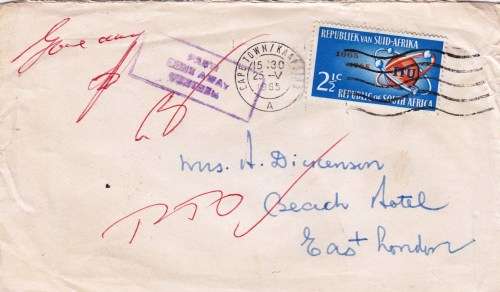 Gone away
GONE AWAY
CAPE TOWN/KAAPSTAD
15:30
25–V
1965
A
REPUBLIEK VAN SUID-AFRIKA
1865
1965
ITU
2½c
REPUBLIC OF SOUTH AFRICA
Mrs. H. Dickenson
Beach Hotel
East London
PTO